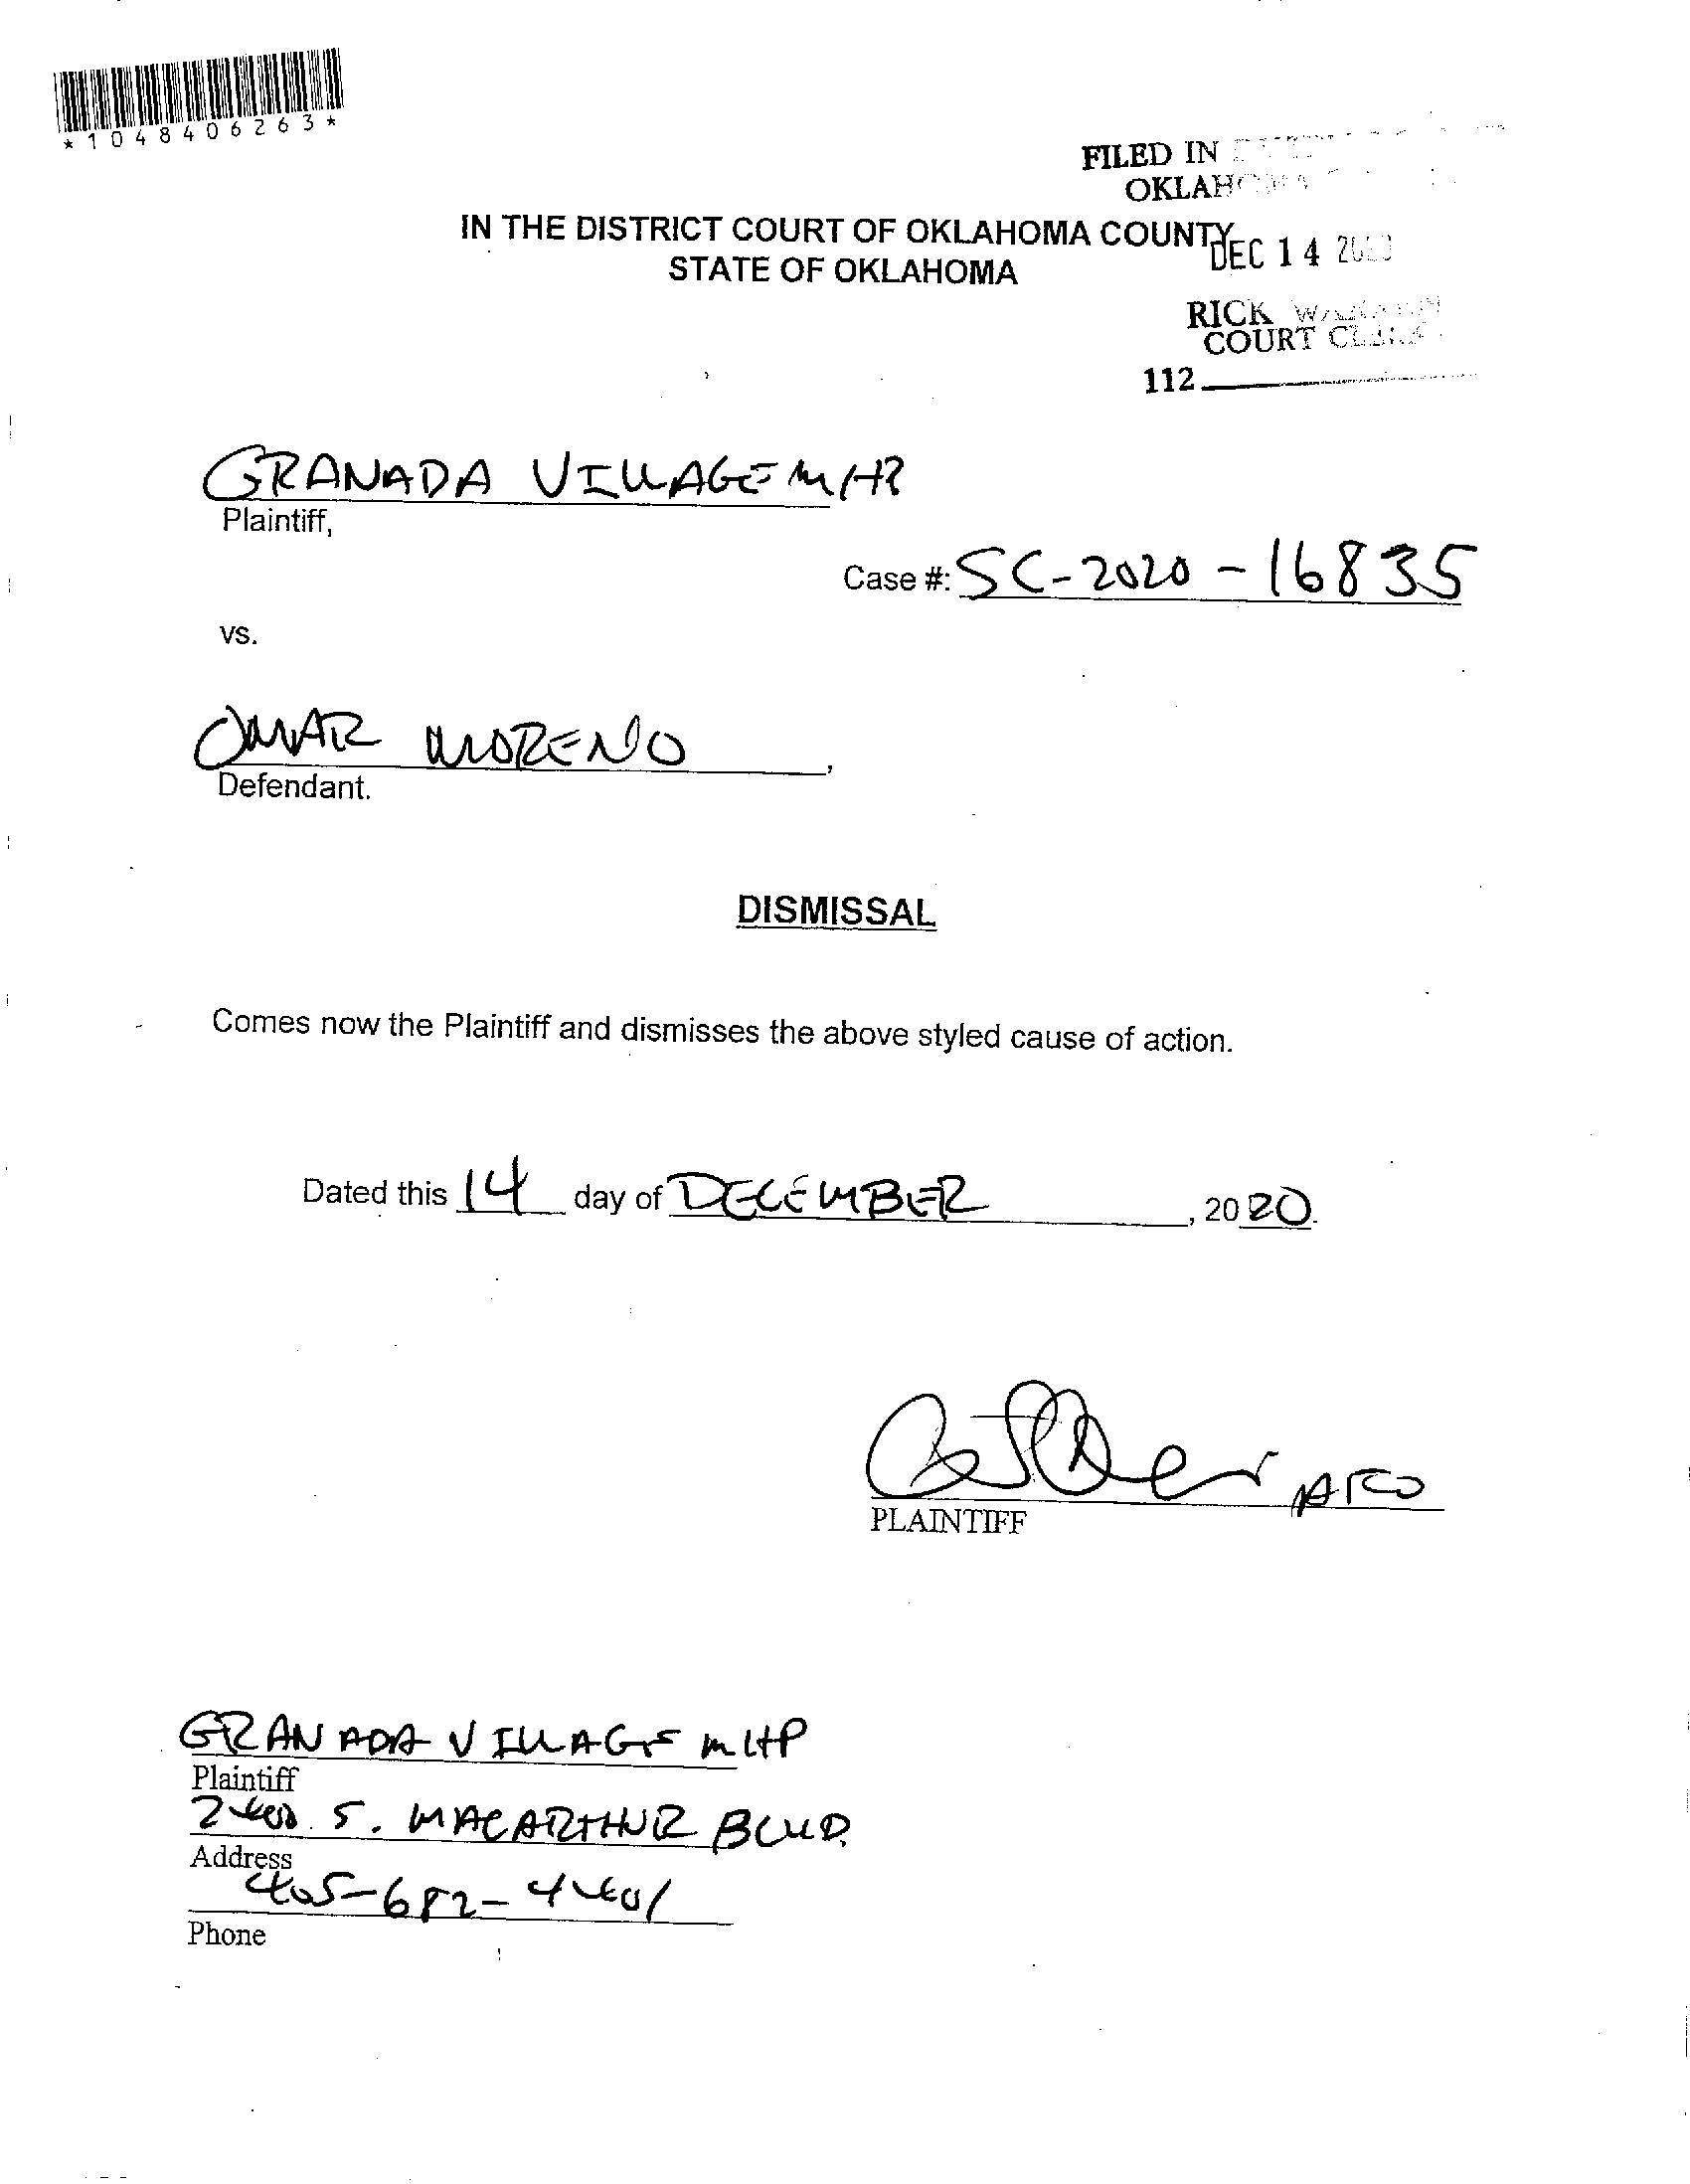 *1048406263*
FILED IN
OKLAHOMA
IN THE DISTRICT COURT OF OKLAHOMA COUNTY
STATE OF OKLAHOMA
DEC 14 2020
RICK WARREN
COURT CLERK
112
GRANADA VILLAGE MHP
Plaintiff,
Case #: SC-2020-16835
vs.
OMAR MORENO,
Defendant.
DISMISSAL
Comes now the Plaintiff and dismisses the above styled cause of action.
Dated this 14 day of DECEMBER, 2020.
PLAINTIFF
GRANADA VILLAGE MHP
Plaintiff
2400 S. MACARTHUR BLVD.
Address
405-682-4401
Phone